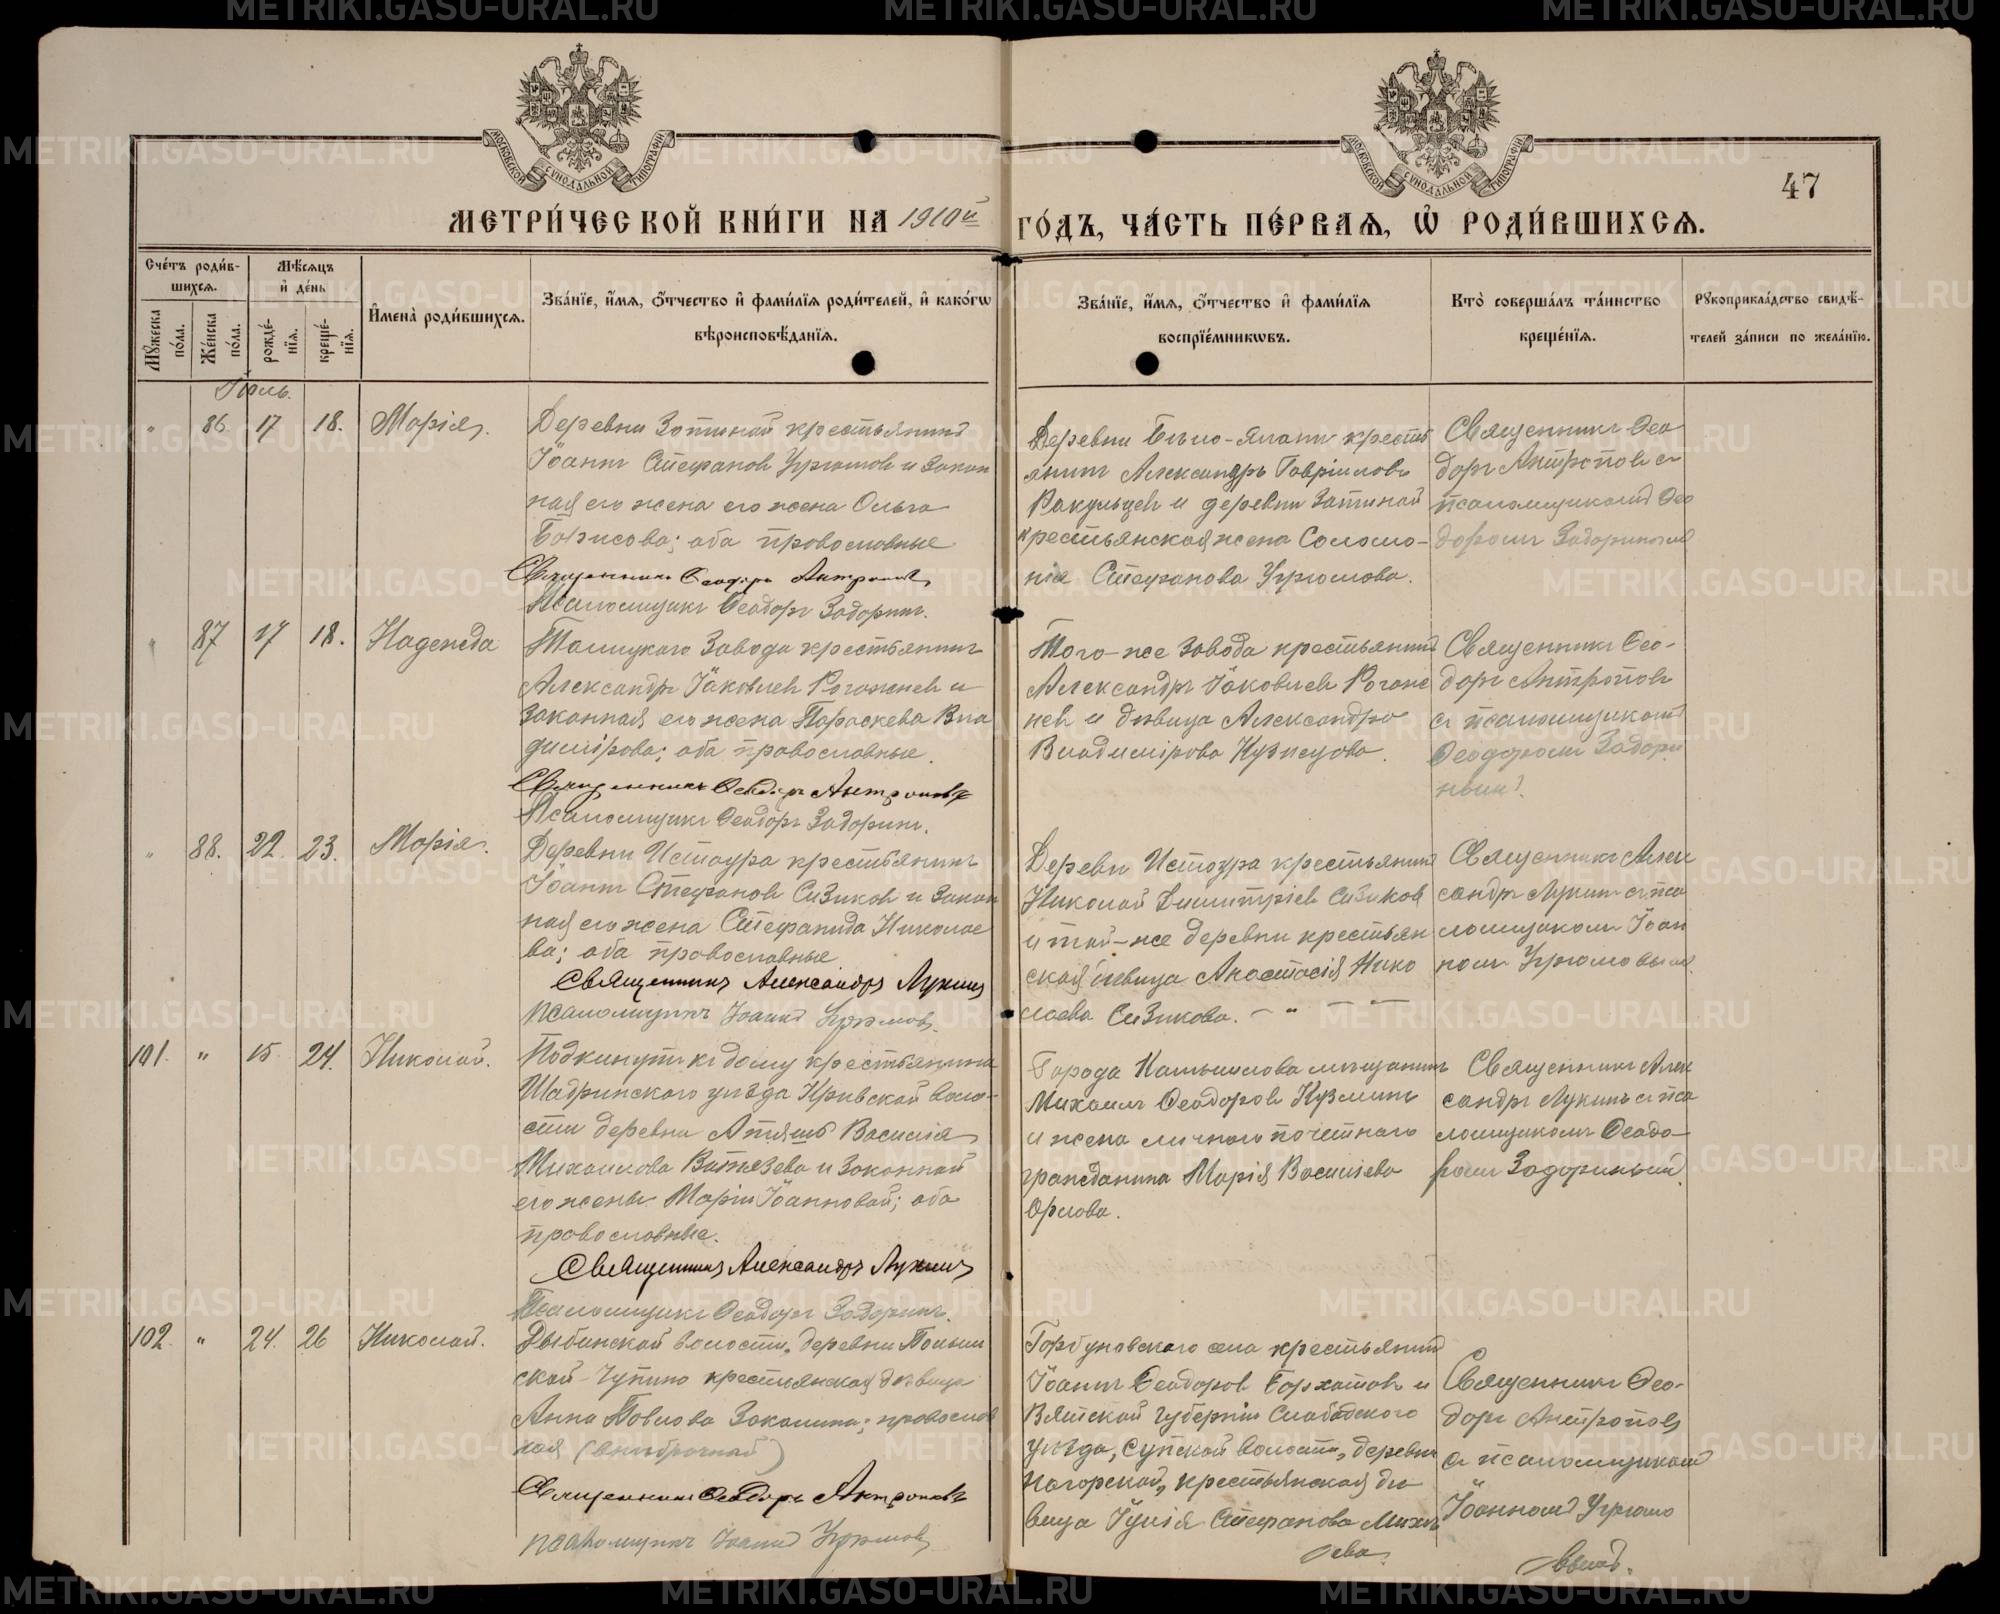 METRIKI.GASO-URAL.RU
МОСКОВСКОЙ СѴНОДАЛЬНОЙ ТИПОГРАФІИ
МОСКОВСКОЙ СѴНОДАЛЬНОЙ ТИПОГРАФІИ
47
МЕТРИ́ЧЕСКОЙ КНИ́ГИ НА 1910й ГО́ДЪ, ЧА́СТЬ ПЕ́РВАѦ, Ѽ РОДИ́ВШИХСѦ.
Сче́тъ роди́в-
шихсѧ.
Мꙋжеска по́ла.
Же́нска по́ла.
Мѣ́сѧцъ
и҆ де́нь
рожде́-
нїѧ.
креще́-
нїѧ.
И҆мена̀ роди́вшихсѧ.
Зва́нїе, и҆́мѧ, ѻ҆́тчество и҆ фами́лїѧ роди́телей, и҆ како́гѡ
вѣроисповѣ́данїѧ.
Зва́нїе, и҆́мѧ, ѻ҆́тчество и҆ фами́лїѧ
воспрїе́мникѡвъ.
Кто̀ соверша́лъ та́инство
креще́нїѧ.
Рꙋкоприкла́дство свидѣ́-
телей за́писи по жела́нїю.
Іюль.
" 86. 17 18. Марія.
Деревни Затинной крестьянинъ
Іоаннъ Стефановъ Угрюмовъ и закон
ная его жена его жена Ольга
Борисова; оба православные
Священникъ Ѳеодоръ Антроповъ
Псаломщикъ Ѳеодоръ Задоринъ.
крестья
янинъ Александръ Гавриловъ
Ракульцевъ и деревни Затинной
крестьянская жена Соломо-
нія Стефанова Угрюмова.
Священникъ Ѳео
доръ Антроповъ съ
псаломщикомъ Ѳео
доромъ Задоринымъ
" 87 17 18. Надежда
Талицкаго Завода крестьянинъ
Александръ Іаковлевъ Рогожневъ и
законная его жена Параскева Вла
димірова; оба православные.
Священникъ Ѳеодоръ Антроповъ
Псаломщикъ Ѳеодоръ Задоринъ.
Того-же завода крестьянинъ
Александръ Іаковлевъ Рогож
невъ и дѣвица Александра
Владимірова Кузнецова.
Священникъ Ѳео-
доръ Антроповъ
съ псаломщикомъ
Ѳеодоромъ Задори
нымъ.
" 88. 22. 23. Марія.
Деревни Истоура крестьянинъ
Іоаннъ Стефановъ Сизиковъ и закон
ная его жена Стефанида Николае
ва; оба православные
Священникъ Александръ Лукинъ
Псаломщикъ Іоаннъ Угрюмовъ.
Деревни Истоура крестьянинъ
Николай Димитріевъ Сизиковъ
и той-же деревни крестьян
ская дѣвица Анастасія Нико
лаева Сизикова. — " — " —
Священникъ Алек
сандръ Лукинъ съ пса
ломщикомъ Іоан
номъ Угрюмовымъ.
101. " 15 24. Николай.
Подкинутъ къ дому крестьянина
Шадринскаго уѣзда Кривской воло-
сти деревни Атяшъ Василія
Михаилова Витязева и законной
его жены Маріи Іоанновой; оба
православные.
Священникъ Александръ Лукинъ
Псаломщикъ Ѳеодоръ Задоринъ.
Города Камышлова мѣщанинъ
Михаилъ Ѳеодоровъ Кузминъ
и жена личнаго почетнаго
гражданина Марія Васильева
Орлова.
Священникъ Алек
сандръ Лукинъ съ пса
ломщикомъ Ѳеодо-
ромъ Задоринымъ.
102. " 24. 26 Николай.
волости, деревни
ской-Чупино крестьянская дѣвица
Анна Павлова Закалина; православ
ная (внѣбрачной)
Священникъ Ѳеодоръ Антроповъ
псаломщикъ Іоаннъ Угрюмовъ
Горбуновскаго села крестьянинъ
Іоаннъ Ѳеодоровъ Бархатовъ и
Вятской губерніи Слободскаго
уѣзда, Сунской волости, деревни
Нагорской, крестьянская дѣ
вица Іулія Стефанова Михѣ
ева.
Священникъ Ѳео-
доръ Антроповъ
съ псаломщикомъ
Іоанномъ Угрюмо
вымъ.